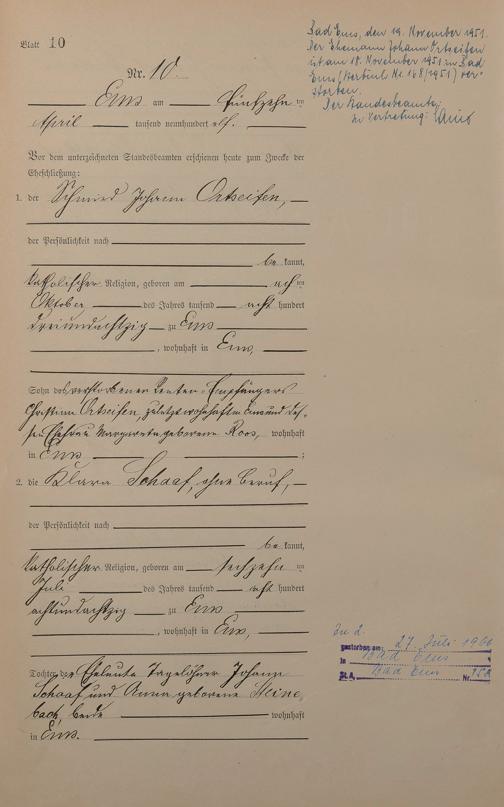 Blatt 10
Nr. 10.
Ems am Fünfzehn ten
April tausend neunhundert elf.
Vor dem unterzeichneten Standesbeamten erschienen heute zum Zwecke der
Eheschließung:
1. der Schmied Johann Ortseifen,
der Persönlichkeit nach
be kannt,
katholischer Religion, geboren am ach ten
Oktober des Jahres tausend acht hundert
dreiundachtzig zu Ems
, wohnhaft in Ems,
Sohn des verstorbenen Renten-Empfängers
Christian Ortseifen, zuletzt wohnhaft in Ems und des-
sen Ehefrau Margareta geborene Roos, wohnhaft
in Ems ;
2. die Klara Schaaf, ohne Beruf,
der Persönlichkeit nach
be kannt,
katholischer Religion, geboren am sechzehn ten
Juli des Jahres tausend acht hundert
achtundachtzig zu Ems
, wohnhaft in Ems,
Tochter der Eheleute Tagelöhner Johann
Schaaf und Anna geborene Heine
bach, beide wohnhaft
in Ems.
Bad Ems, den 19. November 1951.
Der Ehemann Johann Ortseifen
ist am 18. November 1951 in Bad
Ems (Sterbeb. Nr. 168/1951) ver-
storben.
Der Standesbeamte
In Vertretung:
Zu 2.
gestorben am: 27. Juli 1966
in Bad Ems
St.A. Bad Ems Nr.